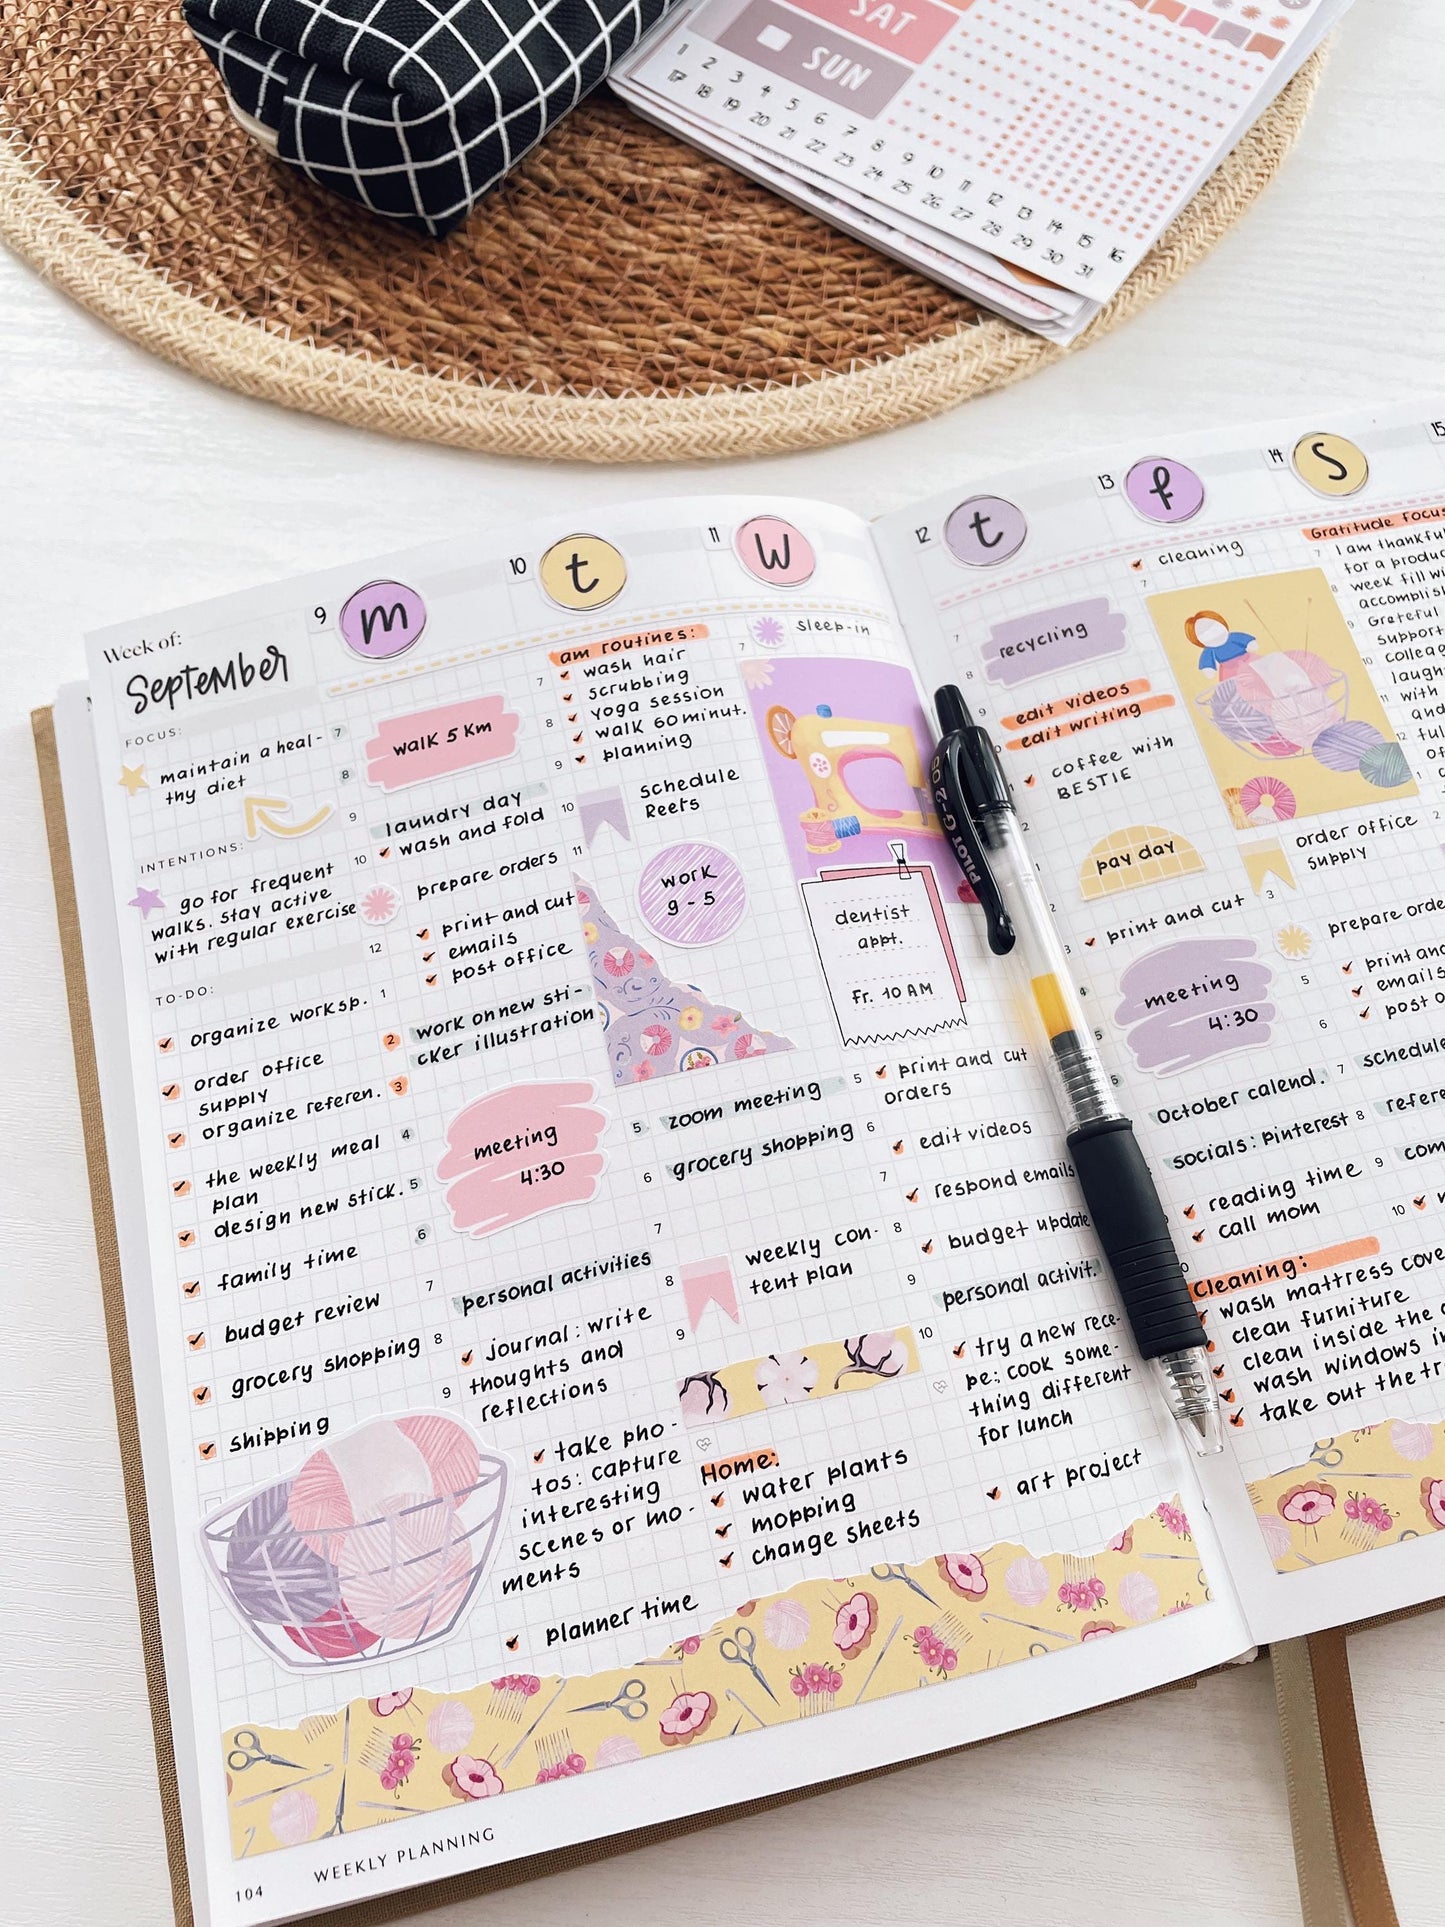 SAT
SUN
1 2 3 4 5 6 7 8 9 10 11 12 13 14 15 16
17 18 19 20 21 22 23 24 25 26 27 28 29 30 31
Week of:
September
FOCUS:
maintain a heal-
thy diet
INTENTIONS:
go for frequent
walks. stay active
with regular exercise
TO-DO:
organize worksp.
order office
supply
organize referen.
the weekly meal
plan
design new stick.
family time
budget review
grocery shopping
shipping
9 m
7
8
9
10
12
1
2
3
4
5
6
7
8
9
walk 5 km
laundry day
wash and fold
prepare orders
print and cut
emails
post office
work on new sti-
cker illustration
meeting
4:30
personal activities
journal: write
thoughts and
reflections
take pho-
tos: capture
interesting
scenes or mo-
ments
planner time
10 t
am routines:
7
8
9
10
11
5
6
7
8
9
wash hair
scrubbing
yoga session
walk 60 minut.
planning
schedule
Reels
work
9-5
zoom meeting
grocery shopping
weekly con-
tent plan
Home:
water plants
mopping
change sheets
11 W
7
sleep-in
dentist
appt.
Fr. 10 AM
5
6
7
8
9
10
print and cut
orders
edit videos
respond emails
budget update
personal activit.
try a new rece-
pe: cook some-
thing different
for lunch
art project
PILOT G-2 05
12 t
7
8
9
recycling
edit videos
edit writing
coffee with
BESTIE
pay day
print and cut
meeting
4:30
October calend.
socials: pinterest
reading time
call mom
Cleaning:
wash mattress cove
clean furniture
clean inside the
wash windows in
take out the tr
13 f
7
cleaning
order office
supply
3
prepare orde
print and
emails
post o
5
6
7
8
9
10
schedule
refere
com
14 S
Gratitude focus
7
8
9
10
11
12
1
2
I am thankfu
for a produc
week fill wi
accomplis
Grateful
support
colleag
laugh
with
and
ful
of
15
WEEKLY PLANNING
104